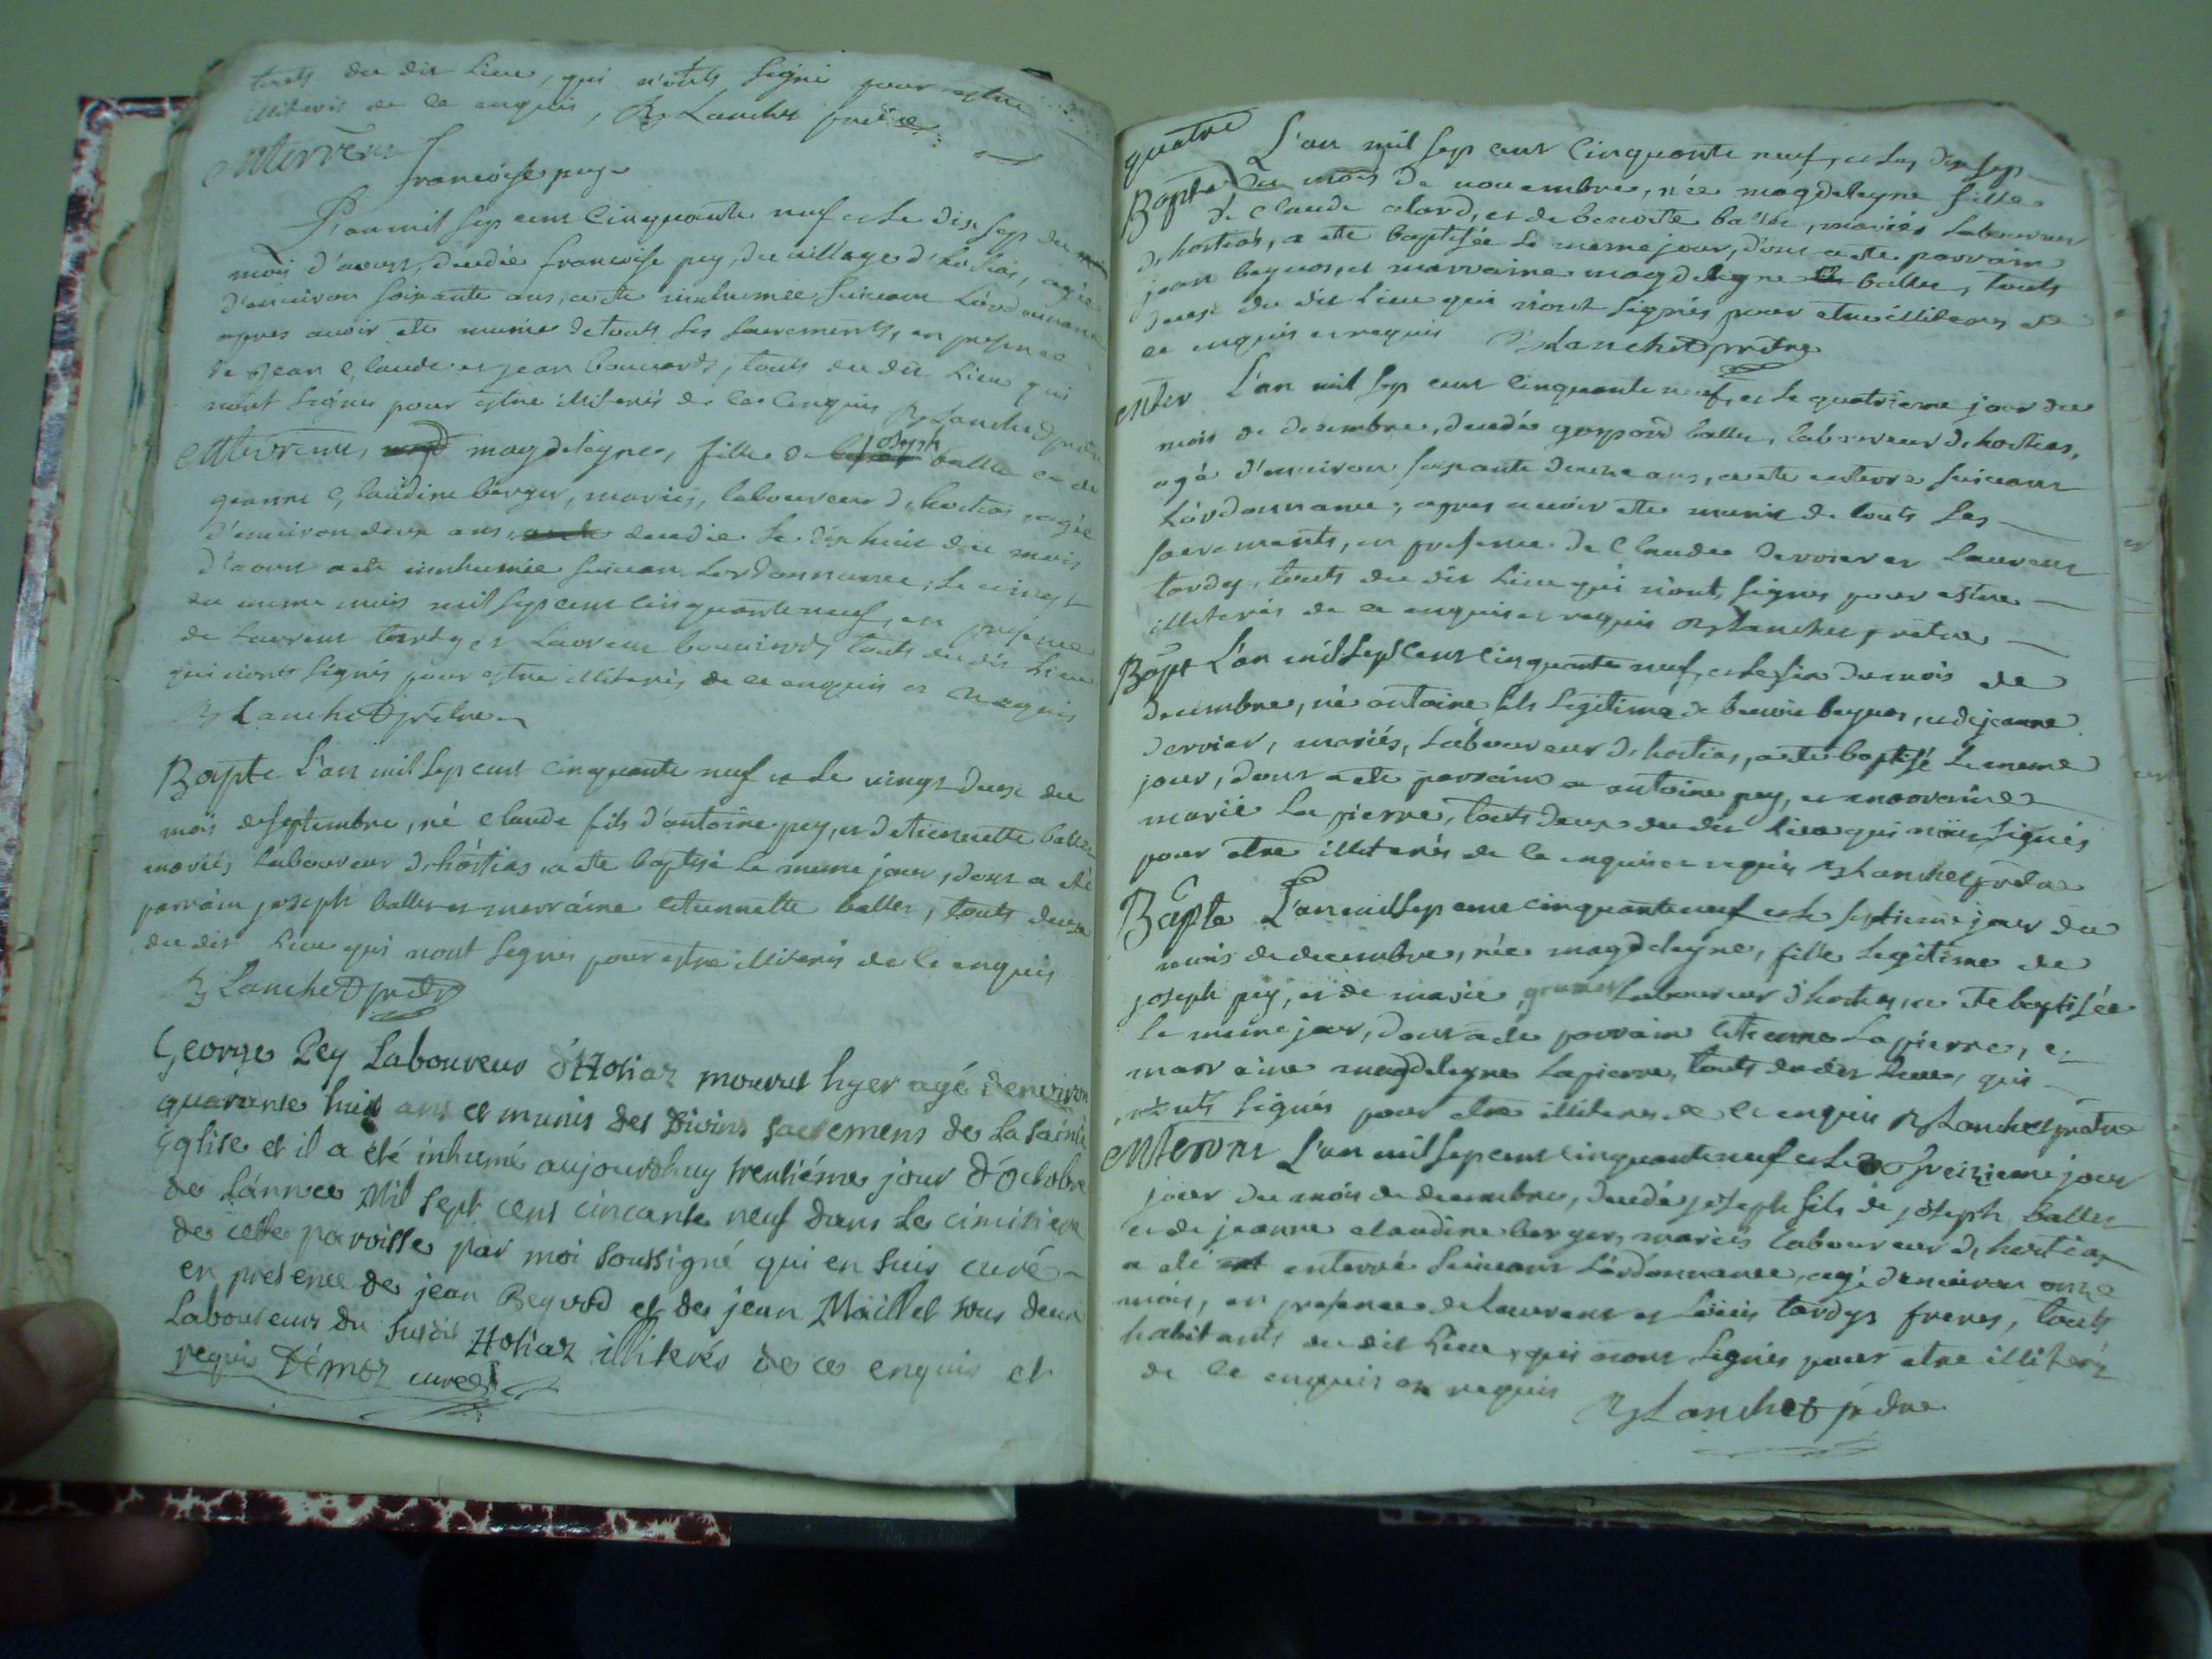 touts du dit Lieu, qui n'onts signé pour estre
illiterés de ce enquis, Blanchet prêtre
enterrem
francoise pey
L'an mil sept cent cinquante neuf et le dix sept du
mois d'aoust, decedée francoise pey, du village d'hostias, agée
d'environ soixante ans, a ete inhumée suivant L'ordonnance
apres avoir ete munie de touts ses sacrements, en presence
de jean claude et jean bouvard, touts du dit Lieu qui
nont signés pour estre illiterés de ce enquis Blanchet prêtre
enterrem, magdelayne, fille de joseph balley et de
jeanne claudine berger, mariés, laboureur d'hostias, agée
d'environ deux ans, decedée Le dix huit du mois
d'aoust a ete inhumée suivan Lordonnance, Le vingt
du meme mois mil sept cent cinquante neuf, en presence
de Laurent tardy et Laurent bouvard, touts du dit Lieu
qui n'onts signés pour estre illiterés de ce enquis et requis
Blanchet prêtre
Bapte L'an mil sept cent cinquante neuf et Le vingt deux du
mois de septembre, né claude fils d'antoine pey, et d'etiennette balley
mariés Laboureur d'hostias, a ete baptisé Le meme jour, dont a eté
parrain joseph balley et marraine etiennette balley, touts deux
du dit Lieu qui nont signés pour estre illiterés de ce enquis
Blanchet prêtre
George Pey Laboureur d'Hostiaz mourut hyer agé denviron
quarante huit ans et munis des Divins sacremens de La sainte
Eglise et il a eté inhumé aujourdhuy trentiéme jour d'Octobre
de L'année Mil sept cent cincante neuf dans Le cimitiere
de cette paroisse par moi soussigné qui en suis curé
en presence de jean Beguod et de jean Maillet tous deux
Laboureurs du susdit Hostiaz illiterés de ce enquis et
requis Démoz curé
quatre L'an mil sept cent cinquante neuf, et Le dix sept
Bapte Du mois de novembre, née magdelayne fille
de claude alard, et de benoite balley, mariés Laboureur
d'hostias, a ete baptisée Le meme jour, dont a ete parrain
jean beguos, et marraine magdelayne balley, touts
deux du dit Lieu qui n'ont signés pour etre illiteres de
ce enquis et requis Blanchet prêtre
enter L'an mil sept cent cinquante neuf, et Le quatrieme jour du
mois de decembre, decedé gaspard balley, laboureur d'hostias,
agé d'environ soixante douze ans, a ete enterré suivant
L'ordonnance, apres avoir ete munis de touts Les
sacrements, en presence de claude dervier et Laurent
tardy, touts du dit Lieu qui n'ont signés pour estre
illiterés de ce enquis et requis Blanchet prêtre
Bapt L'an mil sept cent cinquante neuf, et Le six du mois de
decembre, né antoine fils Legitime de benoit beguos, et de jeanne
dervier, mariés, Laboureur d'hostias, a ete baptisé Le meme
jour, dont a ete parrain antoine pey, et marraine
marie La pierre, touts deux du dit Lieu qui n'ont signés
pour etre illiterés de ce enquis et requis Blanchet prêtre
Bapte L'an mil sept cent cinquante neuf et Le septieme jour du
mois de decembre, née magdelayne, fille Legitime de
joseph pey, et de marie Laboureur d'hostias, a ete baptisée
Le meme jour, dont a ete parrain etienne Lapierre, et
marraine magdelayne Lapierre, touts du dit Lieu, qui
n'onts signés pour etre illiteres de ce enquis Blanchet prêtre
enterem L'an mil sept cent cinquante neuf et Le treizieme jour
jour du mois de decembre, decedé joseph fils de joseph balley
et de jeanne claudine berger, mariés Laboureur d'hostias
a eté enterré suivant L'ordonnance, agé d'environ onze
mois, en presence de Laurent et Louis tardys freres, touts
habitants du dit Lieu, qui n'ont signés pour etre illiterés
de ce enquis et requis Blanchet prêtre